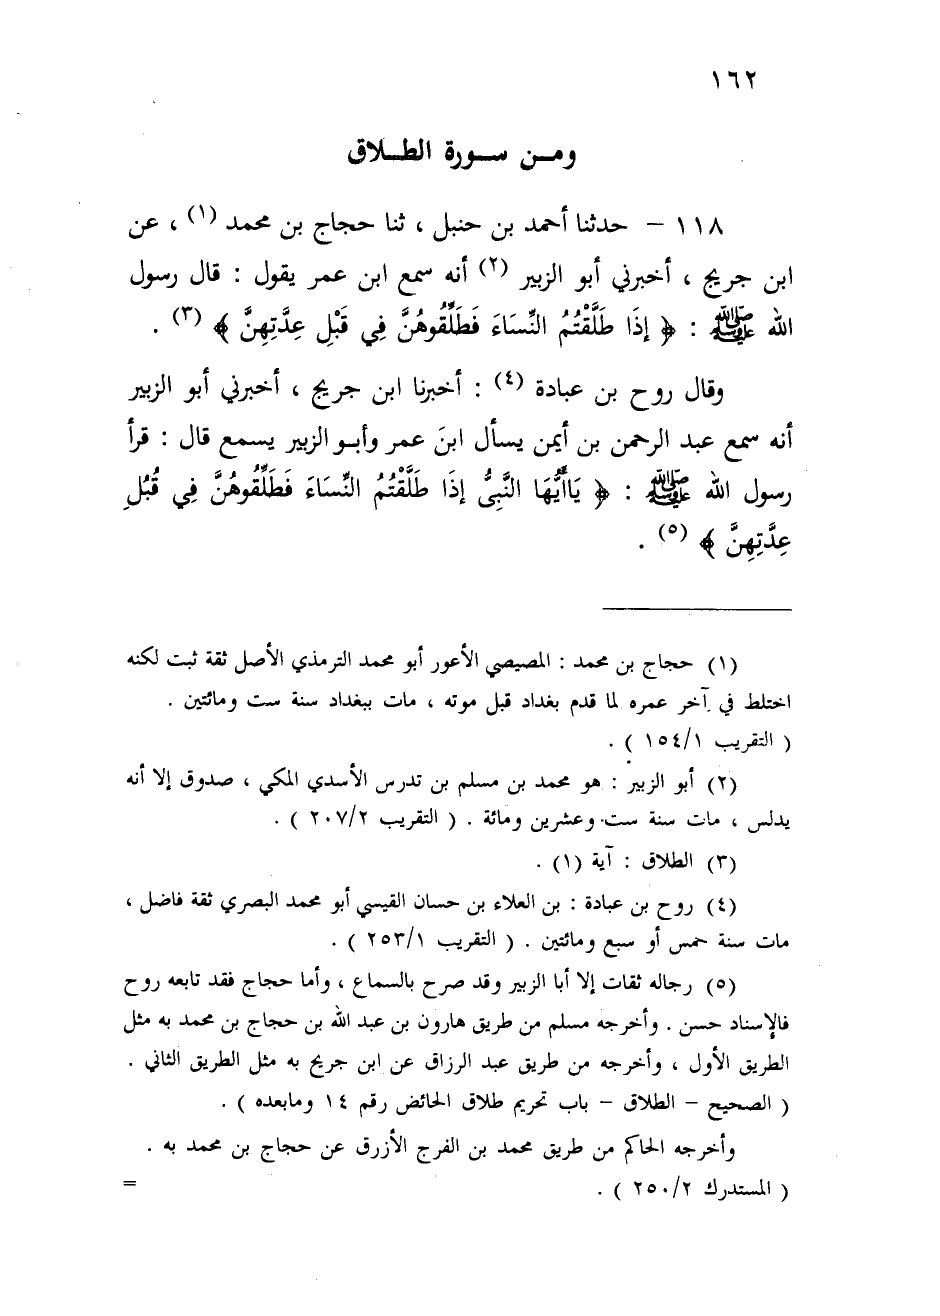 ١٦٢
ومـن سـورة الطـلاق
١١٨ – حدثنا أحمد بن حنبل ، ثنا حجاج بن محمد (١) ، عن
ابن جريج ، أخبرني أبو الزبير (٢) أنه سمع ابن عمر يقول : قال رسول
الله ﷺ : ﴿ إِذَا طَلَّقْتُمُ النِّسَاءَ فَطَلِّقُوهُنَّ فِي قَبْلِ عِدَّتِهِنَّ ﴾ (٣) .
وقال روح بن عبادة (٤) : أخبرنا ابن جريج ، أخبرني أبو الزبير
أنه سمع عبد الرحمن بن أيمن يسأل ابنَ عمر وأبـو الزبير يسمع قال : قرأ
رسول الله ﷺ : ﴿ يَاأَيُّهَا النَّبِىُّ إِذَا طَلَّقْتُمُ النِّسَاءَ فَطَلِّقُوهُنَّ فِي قُبُلِ
عِدَّتِهِنَّ ﴾ (٥) .
(١) حجاج بن محمد : المصيصي الأعور أبو محمد الترمذي الأصل ثقة ثبت لكنه
اختلط في آخر عمره لما قدم بغداد قبل موته ، مات ببغداد سنة ست ومائتين .
( التقريب ١٥٤/١ ) .
(٢) أبو الزبير : هو محمد بن مسلم بن تدرس الأسدي المكي ، صدوق إلا أنه
يدلس ، مات سنة ست وعشرين ومائة . ( التقريب ٢٠٧/٢ ) .
(٣) الطلاق : آية (١) .
(٤) روح بن عبادة : بن العلاء بن حسان القيسي أبو محمد البصري ثقة فاضل ،
مات سنة خمس أو سبع ومائتين . ( التقريب ٢٥٣/١ ) .
(٥) رجاله ثقات إلا أبا الزبير وقد صرح بالسماع ، وأما حجاج فقد تابعه روح
فالإسناد حسن . وأخرجه مسلم من طريق هارون بن عبد الله بن حجاج بن محمد به مثل
الطريق الأول ، وأخرجه من طريق عبد الرزاق عن ابن جريج به مثل الطريق الثاني .
( الصحيح – الطلاق – باب تحريم طلاق الحائض رقم ١٤ ومابعده ) .
وأخرجه الحاكم من طريق محمد بن الفرج الأزرق عن حجاج بن محمد به .
( المستدرك ٢٥٠/٢ ) . =